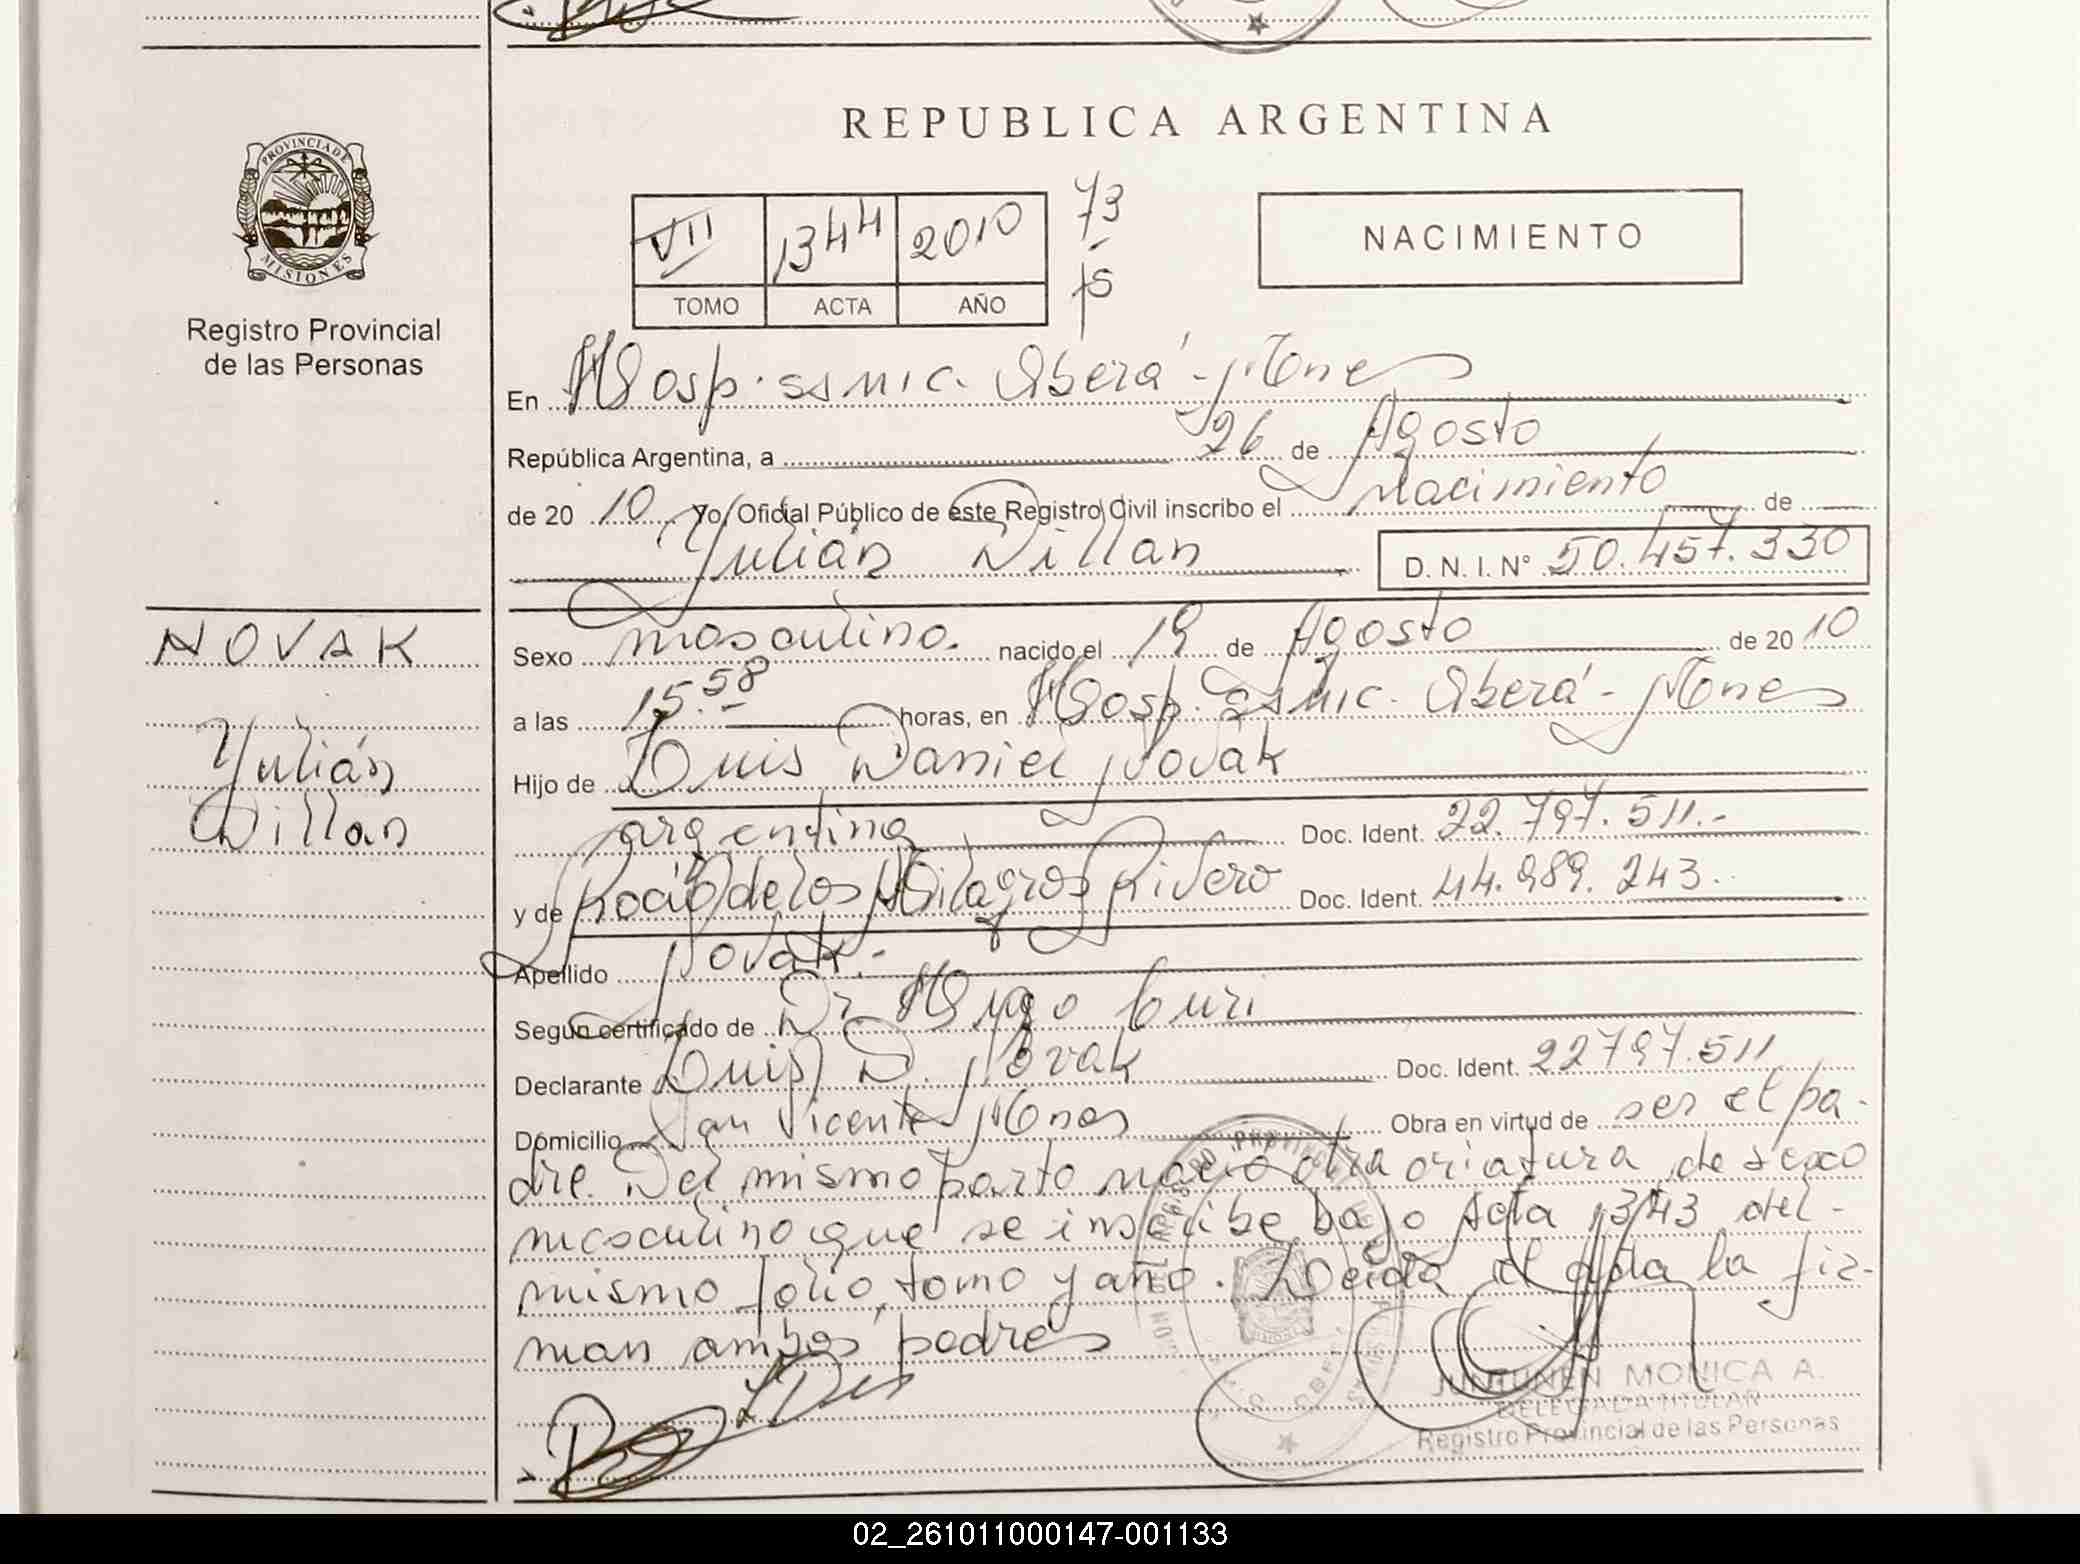 REPUBLICA ARGENTINA
PROVINCIA DE
MISIONES
Registro Provincial
de las Personas
VII 1344 2010 73
TOMO ACTA AÑO
NACIMIENTO
En Hosp. ssmic. Oberá - Mnes
República Argentina, a 26 de Agosto
de 20 10 Yo, Oficial Público de este Registro Civil inscribo el nacimiento de
Yulián Dillan D. N. I. N° 50.457.330
NOVAK
Yulián
Dillan
Sexo masculino. nacido el 19 de Agosto de 20 10
a las 15.58 horas, en Hosp. ssmic. Oberá - Mnes
Hijo de Luis Daniel Novak
argentina Doc. Ident. 22.797.511.-
y de Rocio de los Milagros Rivero Doc. Ident. 44.989.243.
Apellido Novak.-
Según certificado de Dr Hugo Curi
Declarante Luis D. Novak Doc. Ident. 22797.511
Domicilio San Vicente Mnes Obra en virtud de ser el pa-
dre. Del mismo parto nació otra criatura de sexo
masculino que se inscribe bajo Acta 1343 del-
mismo folio, tomo y año. Leida el acta la fir-
man ambos padres
JUNTUNEN MONICA A.
DELEGADA TITULAR
Registro Provincial de las Personas
02_261011000147-001133